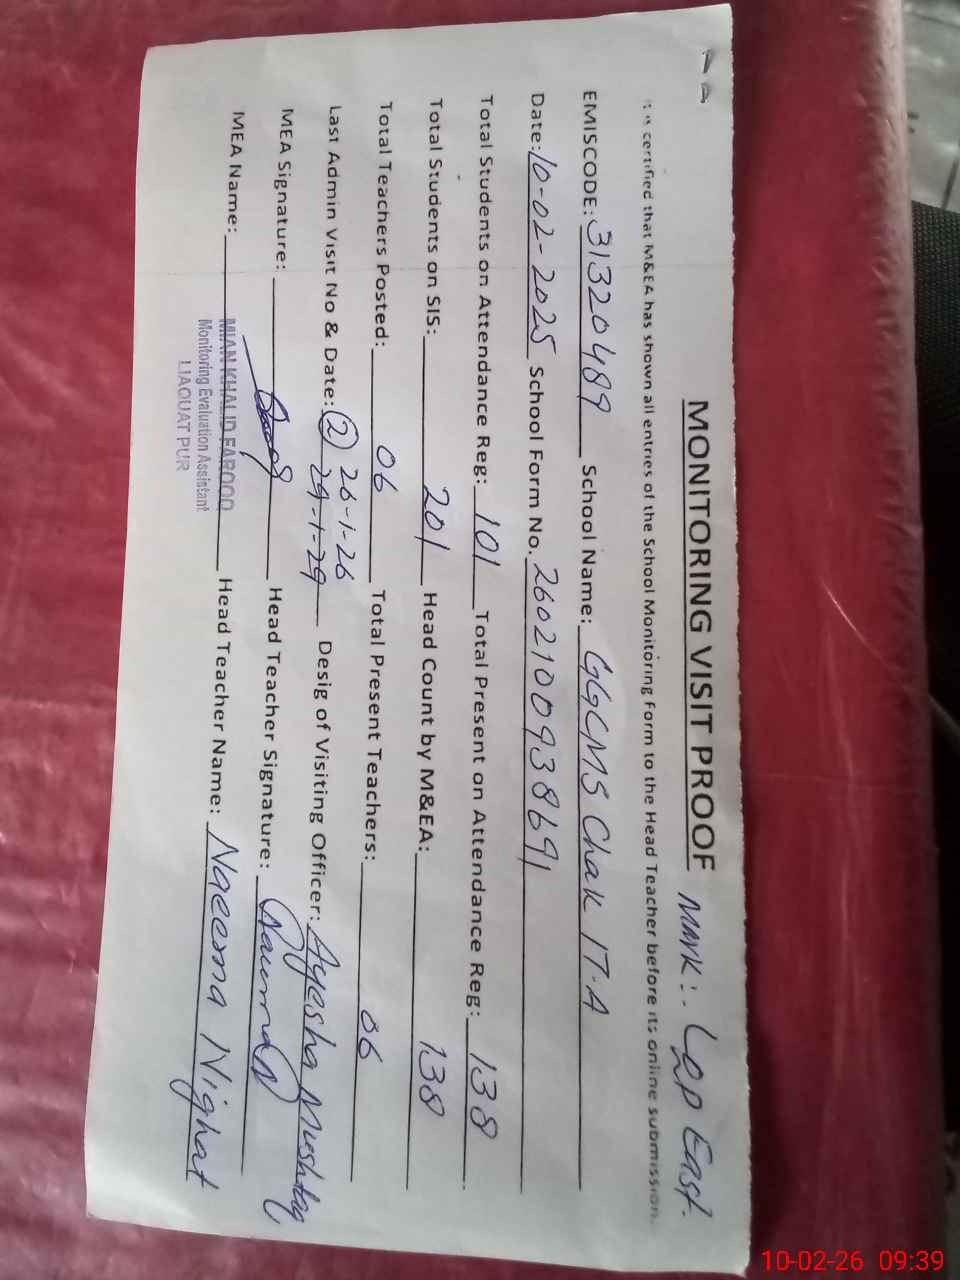 MONITORING VISIT PROOF Mark:. LQP East.
It is certified that M&EA has shown all entries of the School Monitoring Form to the Head Teacher before its online submission.
EMISCODE: 31320489 School Name: GGCMS Chak 17-A
Date: 10-02-2025 School Form No. 2602100938691
Total Students on Attendance Reg: 101 Total Present on Attendance Reg: 138
Total Students on SIS: 201 Head Count by M&EA: 138
Total Teachers Posted: 06 Total Present Teachers: 06
26-1-26
Last Admin Visit No & Date: (2) 29-1-29 Desig of Visiting Officer: Ayesha Mushtaq
MEA Signature: Head Teacher Signature:
MEA Name: MIAN KHALID FAROOQ Head Teacher Name: Naeema Nighat
Monitoring Evaluation Assistant
LIAQUAT PUR
10-02-26 09:39